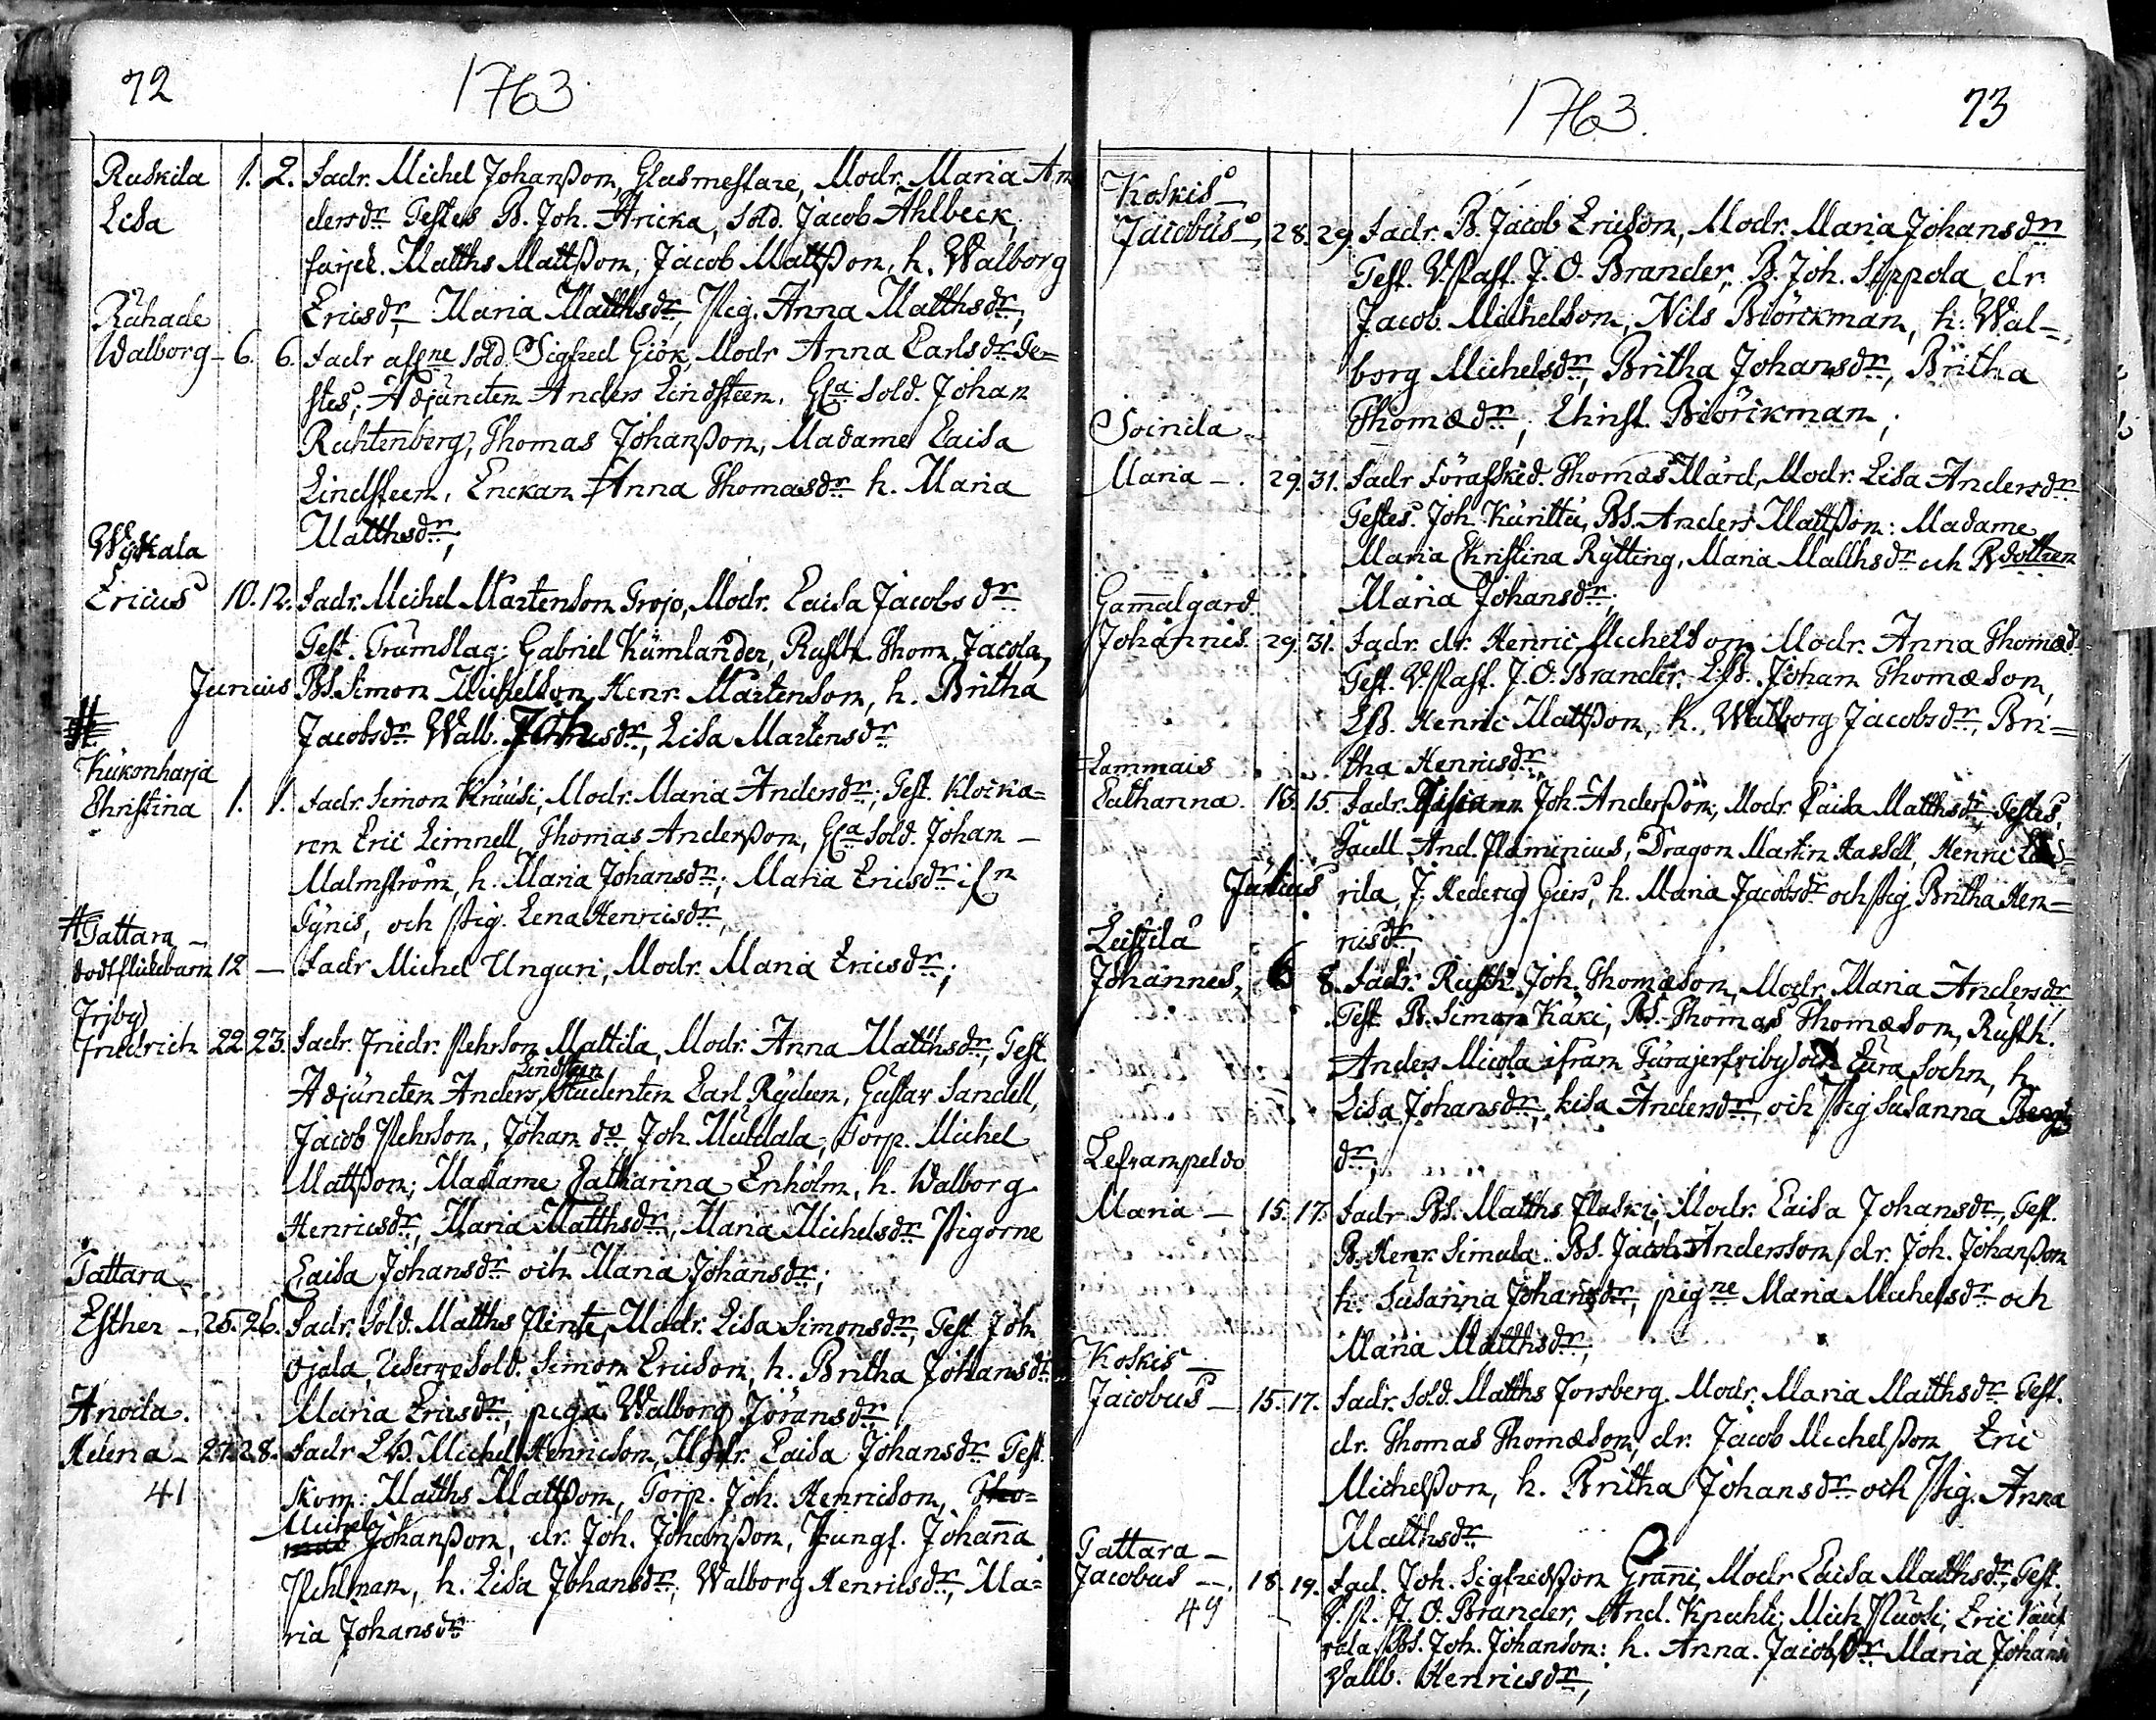 72
1763
Raskila
Lisa
1. 2. Fadr. Michel Johanßon, Glasmestare, Modr. Maria An
dersdr Testes B. Joh. Aricka, Sold. Jacob Ahlbeck,
farjek. Matths Mattßon, Jacob Mattßon, h. Walborg
Ericsdr, Maria Matthsdr, Pig. Anna Matthsdr,
Rahade
Walborg - 6. 6. Fadr Sold. Sigfred Giök, Modr Anna Carlsdr Te=
stes, Adjuncten Anders Lindsteen, Sold. Johan
Rechtenberg, Thomas Johanßon, Madame Caisa
Lindsteen, Enckan Anna Thomasdr h. Maria
Matthsdr,
Ericus 10. 12. Fadr. Michel Mårtenson Trojo, Modr. Caisa Jacobs dr
Test. Trumslag: Gabriel Kumlander, Rusth. Thom. Jacola,
Junius BS. Simon Michelson, Henr. Mårtenson, h. Britha
Jacobsdr Walb. dr, Lisa Mårtensdr
Kukonharja
Christina 1. 1. Fadr. Simon Kruusi, Modr. Maria Andersdr; Test. Klocka=
ren Eric Limnell, Thomas Anderßon, Sold. Johan -
Malmström, h. Maria Johansdr; Maria Ericsdr
och Pig. Lena Henricsdr,
Tattara -
dodtflickebarn 12 - Fadr Michel Ungari, Modr. Maria Ericsdr;
Friby
Friedrich 22. 23. Fadr. Friedr. Pehrson Mattila, Modr. Anna Matthsdr, Test.
Lindsteen
Adjuncten Anders, Studenten Carl Rydeen, Gustav Sandell,
Jacob Pehrson, Johan do Joh. Torp. Michel
Mattßon; Madame Catharina Enholm, h. Walborg
Henricsdr, Maria Matthsdr, Maria Michelsdr Pigorne
Caisa Johansdr och Maria Johansdr;
Tattara
Esther - 25. 26. Fadr. Sold. Matths Flinte, Modr. Lisa Simonsdr; Test Joh
Ojala, Sold. Simon Ericson, h. Britha Johansdr
Maria Ericsdr, piga Walborg Jöransdr
Anoila.
Helena - 27. 28. Fadr Michel Henricson, Modr. Caisa Johansdr Test
41
Skom: Matths Mattßon, Torp. Joh. Henricson, Tho=
Michels
mas Johanßon, dr. Joh. Johanßon, Jungf. Johanna
Pehlman, h. Lisa Johansdr; Walborg Henricsdr, Ma=
ria Johansdr
1763.
73
Koskis -
Jacobus -, 28. 29. Fadr. B. Jacob Ericson, Modr. Maria Johansdr
Test. V. Past. J. O. Brander, B. Joh. Seppola, dr
Jacob Michelson, Nils Biörckman, h: Wal=
borg Michelsdr, Britha Johansdr, Britha
Thomædr, Christ. Biörckman,
Soinila -
Maria -. 29. 31. Fadr Förafsked. Thomas Mård, Modr. Lisa Andersdr
Testes. Joh. Kurittu, BS. Anders Mattßon: Madame
Maria Christina Rylting, Maria Matthsdr och
Maria Johansdr,
Gamalgard
Johannis 29. 31. Fadr. dr. Henric Michelson Modr. Anna Thomæd.
Test. V. Past. J. O. Brander, Johan Thomæson,
Henric Mattßon, h. Walborg Jacobsdr, Bri=
tha Henricsdr,
Lammais
Catharina. 13. 15. Fadr. Joh. Anderßon, Modr Caisa Matthsdr, Testes,
And. Flaminius, Dragon Martin Hassell, Henric
Julius rila, J. Hederig h. Maria Jacobsdr och Pig Britha Hen=
ricsdr,
Leistila
Johannes, 6 8. Fadr. Rusth. Joh. Thomæson, Modr Maria Andersdr
Test. B. Simon Käki, BS. Thomas Thomæson, Rusth.
Anders Micola ifrån och Eura Sochn, h.
Lisa Johansdr, Lisa Andersdr, och Pig Susanna Bengts
dr;
Maria - 15. 17. Fadr BS. Matths Flaski, Modr. Caisa Johansdr, Test.
B. Henr. Simula. BS. Jacob Andersson, dr. Joh. Johanßon
h. Susanna Johansdr, pigne Maria Michelsdr och
Maria Matthsdr,
Koskis -
Jacobus - 15. 17. Fadr. Sold. Matths Forsberg. Modr. Maria Matthsdr Test.
dr. Thomas Thomæson, dr. Jacob Michelßon, Eric
Michelßon, h. Britha Johansdr och Pig. Anna
Matthsdr
Tattara -
Jacobus -. 18. 19. Fad. Joh. Sigfredßon Granni, Modr Caisa Matthsdr, Test.
49
J. O. Brander, And. Mich Puosi, Eric
BS. Joh. Johanson: h. Anna. Jacobsdr Maria Johans
Wallb. Henricsdr,